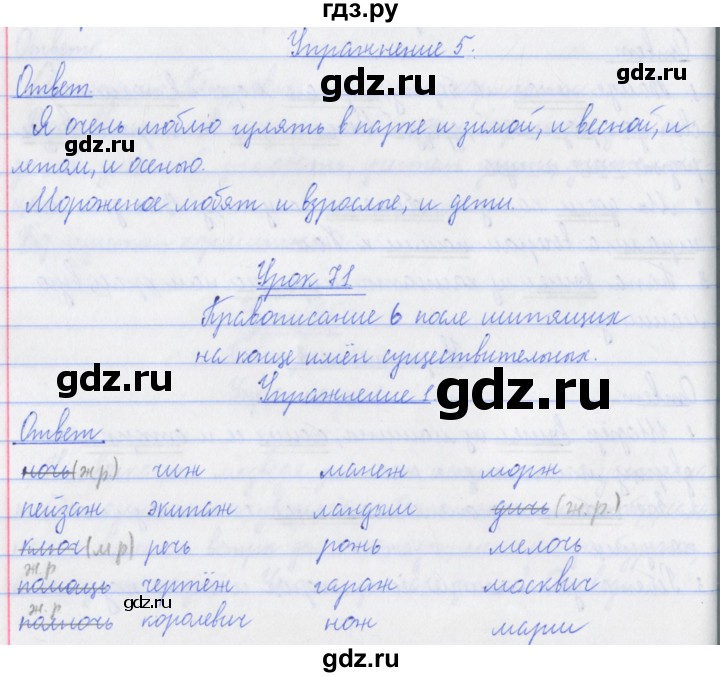 гдз.ру
Упражнение 5.
gdz.ru
Ответ.
gdz.ru
gdz.ru
Я очень люблю гулять в парке и зимой, и весной, и
летом, и осенью.
Мороженое любят и взрослые, и дети.
gdz.ru
gdz.ru
Урок 71
Правописание ь после шипящих
на конце имён существительных.
gdz.ru
Упражнение 1
gdz.ru
Ответ
ночь (ж.р) чиж манеж морж
gdz.ru
gdz.ru
пейзаж экипаж ландыш дичь (ж.р.)
ключ (м р) речь рожь мелочь
ж.р
помощь чертёж гараж москвич
gdz.ru
ж.р
полночь королевич нож марш
gdz.ru
gdz.ru